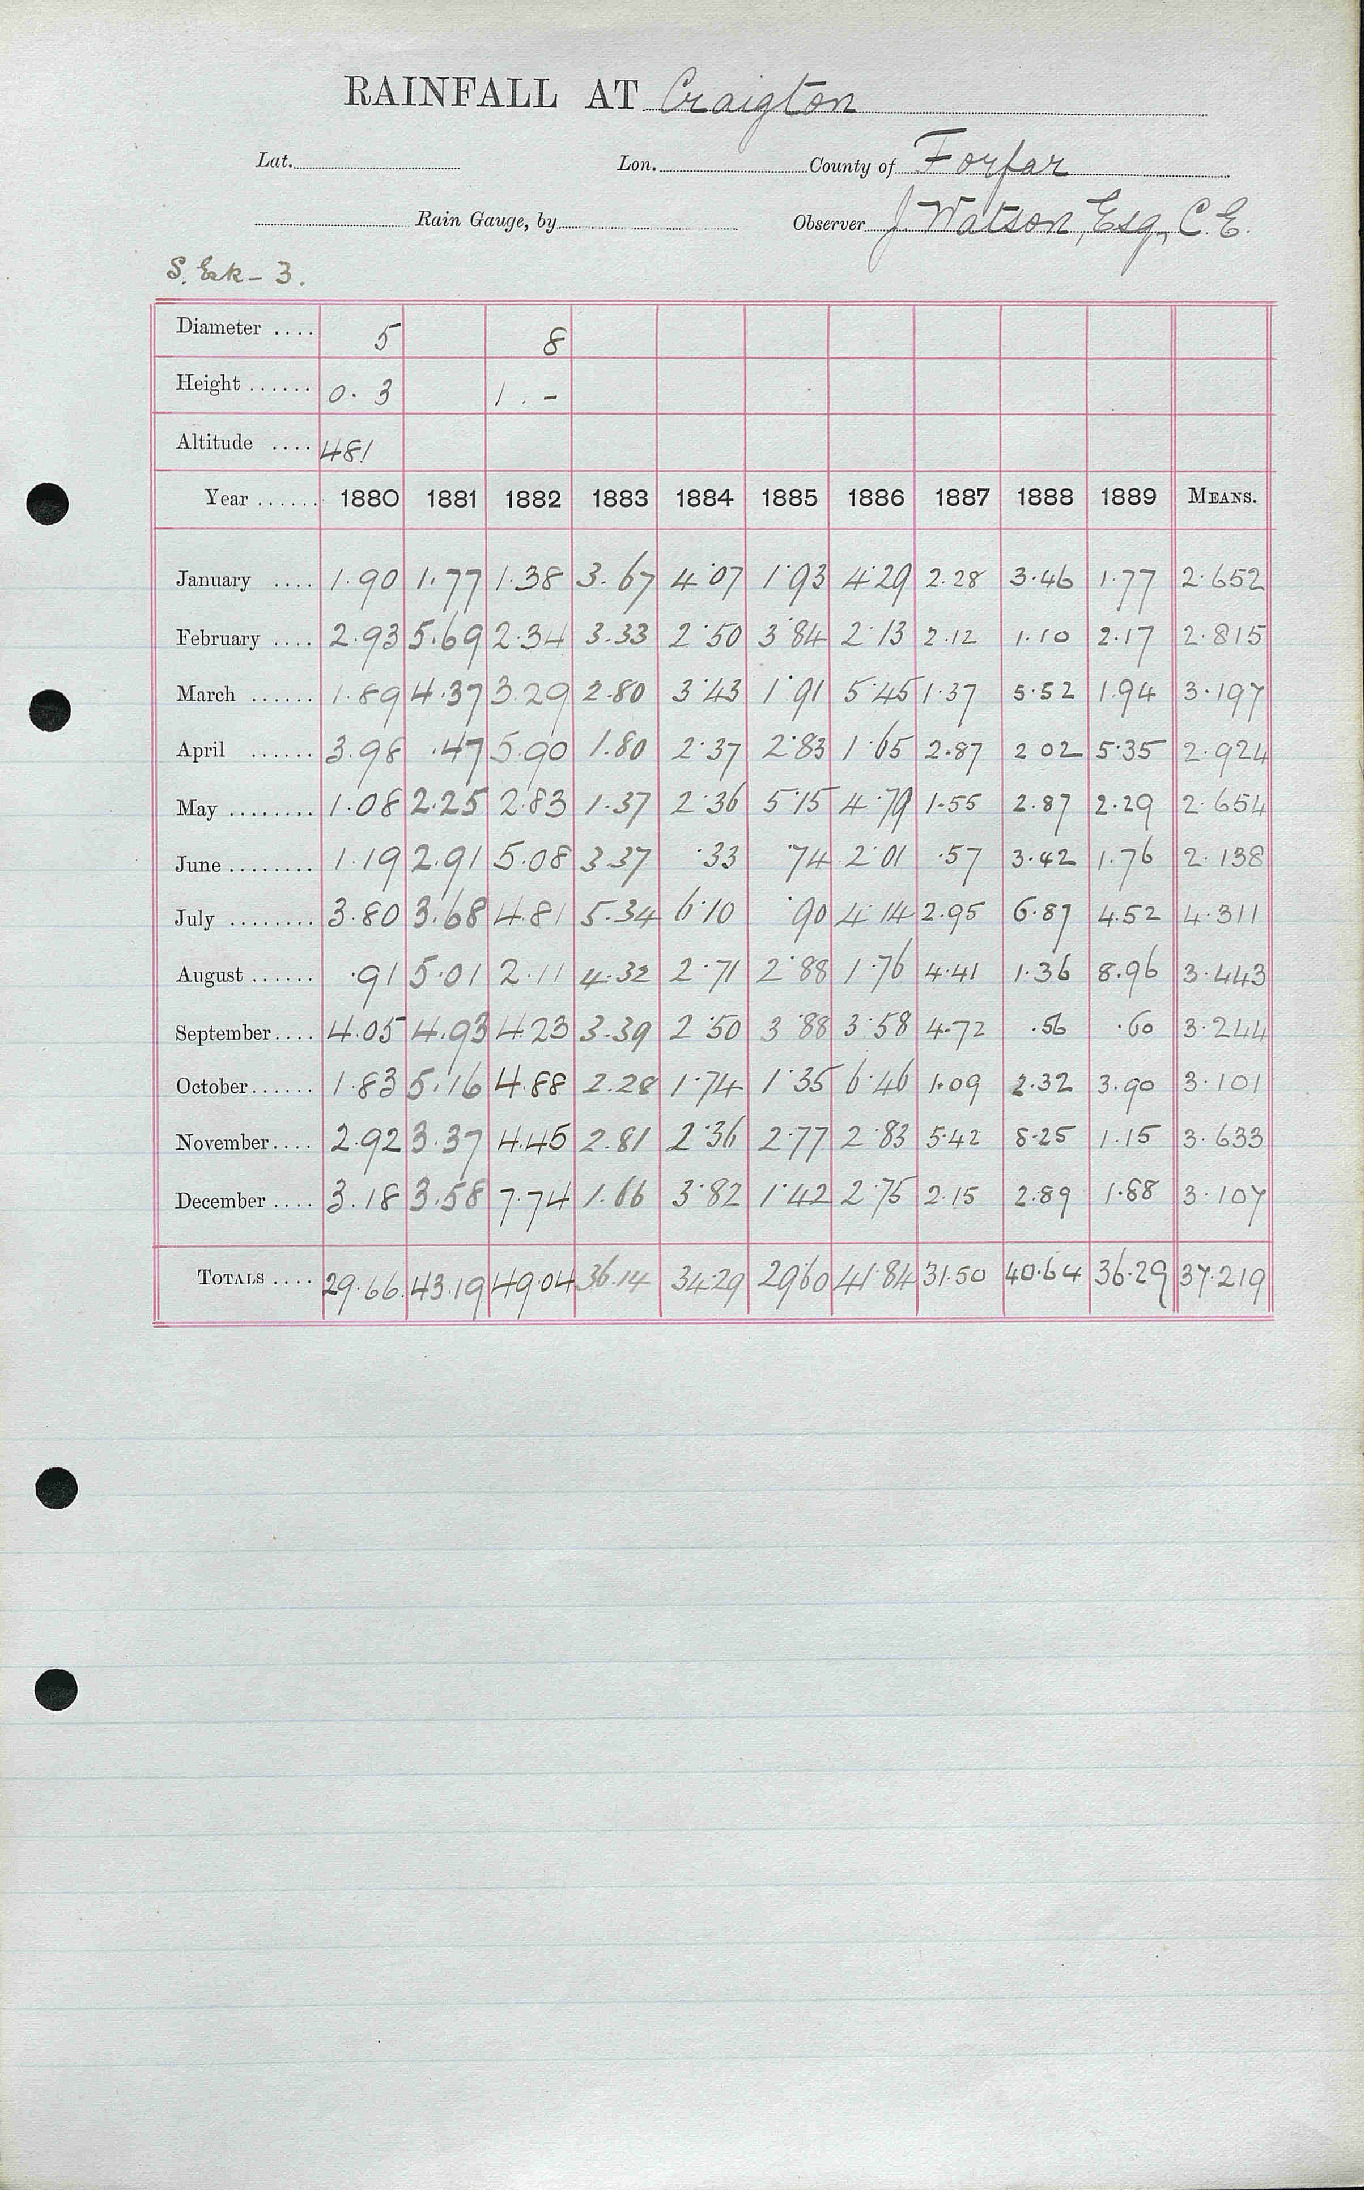 RAINFALL AT Craigton
Lat. Lon. County of Forfar
Rain Gauge, by Observer J. Watson, Esq., C.E.
S. Esk - 3.
Diameter .... 5 8
Height ...... 0. 3 1. -
Altitude .... 481
Year ...... 1880 1881 1882 1883 1884 1885 1886 1887 1888 1889 MEANS.
January .... 1.90 1.77 1.38 3.67 4.07 1.93 4.29 2.28 3.46 1.77 2.652
February .... 2.93 5.69 2.34 3.33 2.50 3.84 2.13 2.12 1.10 2.17 2.815
March ...... 1.89 4.37 3.29 2.80 3.43 1.91 5.45 1.37 5.52 1.94 3.197
April ...... 3.98 .47 5.90 1.80 2.37 2.83 1.65 2.87 2 02 5.35 2.924
May ........ 1.08 2.25 2.83 1.37 2.36 5.15 4.79 1.55 2.87 2.29 2.654
June ........ 1.19 2.91 5.08 3.37 .33 .74 2.01 .57 3.42 1.76 2.138
July ........ 3.80 3.68 4.81 5.34 6.10 .90 4.14 2.95 6.87 4.52 4.311
August ...... .91 5.01 2.11 4.32 2.71 2.88 1.76 4.41 1.36 8.96 3.443
September .... 4.05 4.93 4.23 3.39 2.50 3.88 3.58 4.72 .56 .60 3.244
October ...... 1.83 5.16 4.88 2.28 1.74 1.35 6.46 1.09 2.32 3.90 3.101
November .... 2.92 3.37 4.45 2.81 2.36 2.77 2.83 5.42 8.25 1.15 3.633
December .... 3.18 3.58 7.74 1.66 3.82 1.42 2.75 2.15 2.89 1.88 3.107
TOTALS .... 29.66 43.19 49.04 36.14 34.29 29.60 41.84 31.50 40.64 36.29 37.219